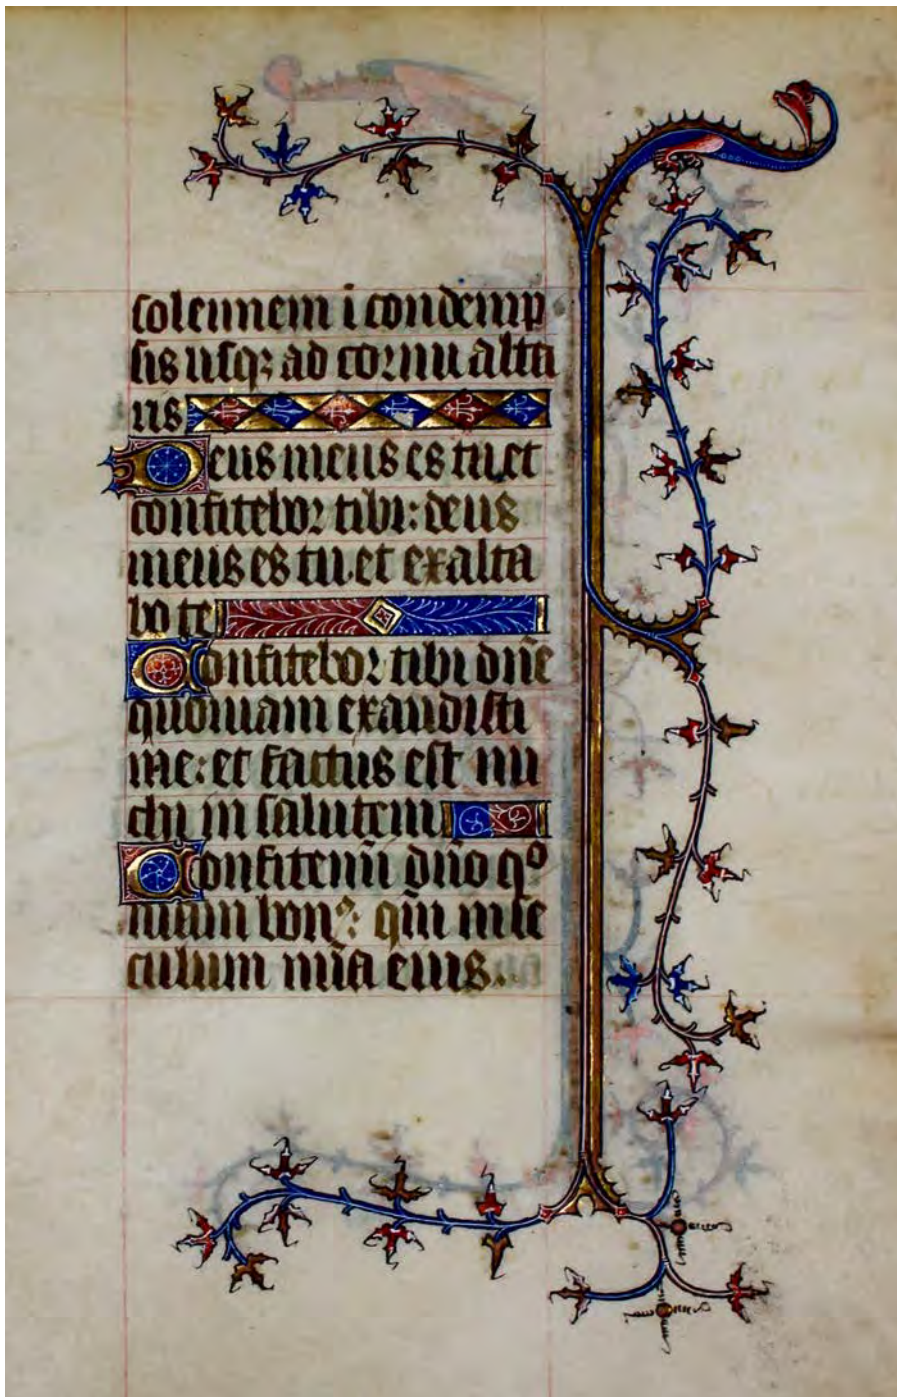 solennem i condemp
sis usq; ad cornu alta
ris
Deus meus es tu et
confitebor tibi: deus
meus es tu et exalta
bo te
Confitebor tibi dñe
quoniam exaudisti
me: et factus est mi
chi in salutem
Confitemĩ dño qº
niam bonꝰ: qm̃ in se
culum mĩa eius.